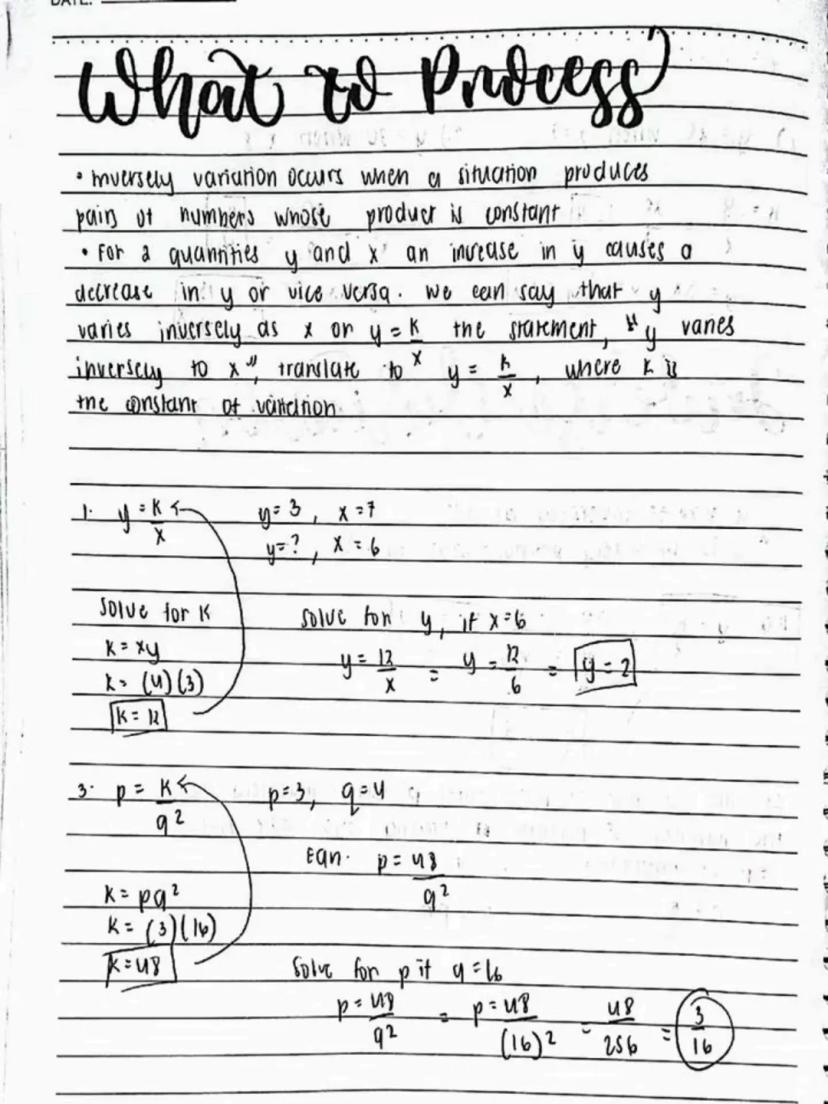 DATE:
What to Process
• Inversely variation occurs when a situation produces
pairs of numbers whose product is constant
• For 2 quantities y and x an increase in y causes a
decrease in y or vice versa. we can say that y
varies inversely as x or y = k/x the statement, "y varies
inversely to x", translate to y = k/x, where k is
the constant of variation
1. y = k/x y = 3, x = 7
y = ?, x = 6
Solve for k solve for y, if x = 6
k = xy y = 12/x = y = 12/6 = y = 2
k = (4)(3)
k = 12
3. p = k/q² p = 3, q = 4
Eqn. p = 48/q²
k = pq²
k = (3)(16)
k = 48 solve for p if q = 16
p = 48/q² = p = 48/(16)² = 48/256 = 3/16